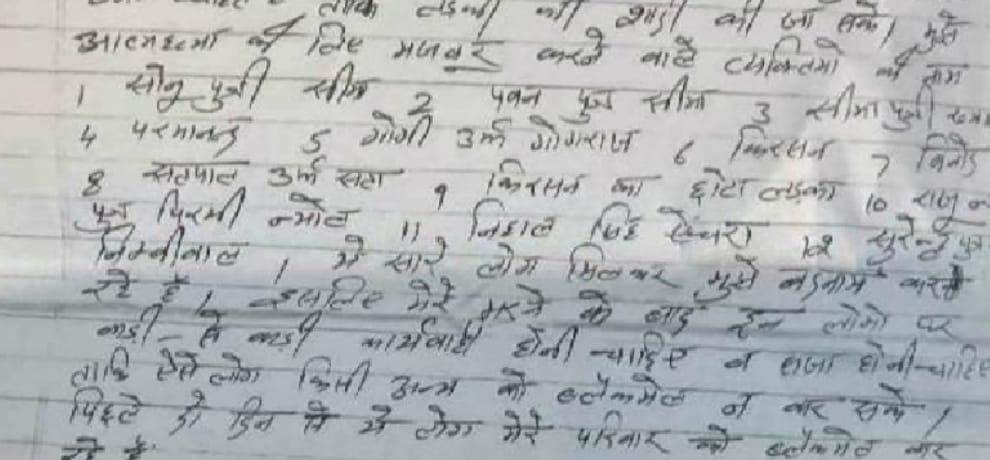 ताकि लडकी की शादी की जा सके। मुझे
आत्महत्या के लिए मजबूर करने वाले व्यक्तियों के नाम
1 सोनू पुत्री सीमा 2 पवन पुत्र सीमा 3 सीमा पुत्री
4 परमानन्द 5 गोगी उर्फ गोगराज 6 किरसन 7 विनोद
8 सतपाल उर्फ सता 9 किरसन का छोटा लड़का 10 राजू
पुत्र पिरमी 11 निहाल सिंह 12 सुरेन्द्र पुत्र
। ये सारे लोग मिलकर मुझे बदनाम करते
रहे हैं। इसलिए मेरे मरने के बाद इन लोगो पर
कड़ी-से कड़ी कार्यवाही होनी चाहिए व सजा होनी चाहिए
ताकि ऐसे लोग किसी अन्य को ब्लैकमेल न कर सके।
पिछले दो दिन से ये लोग मेरे परिवार को ब्लैकमेल कर
रहे हैं